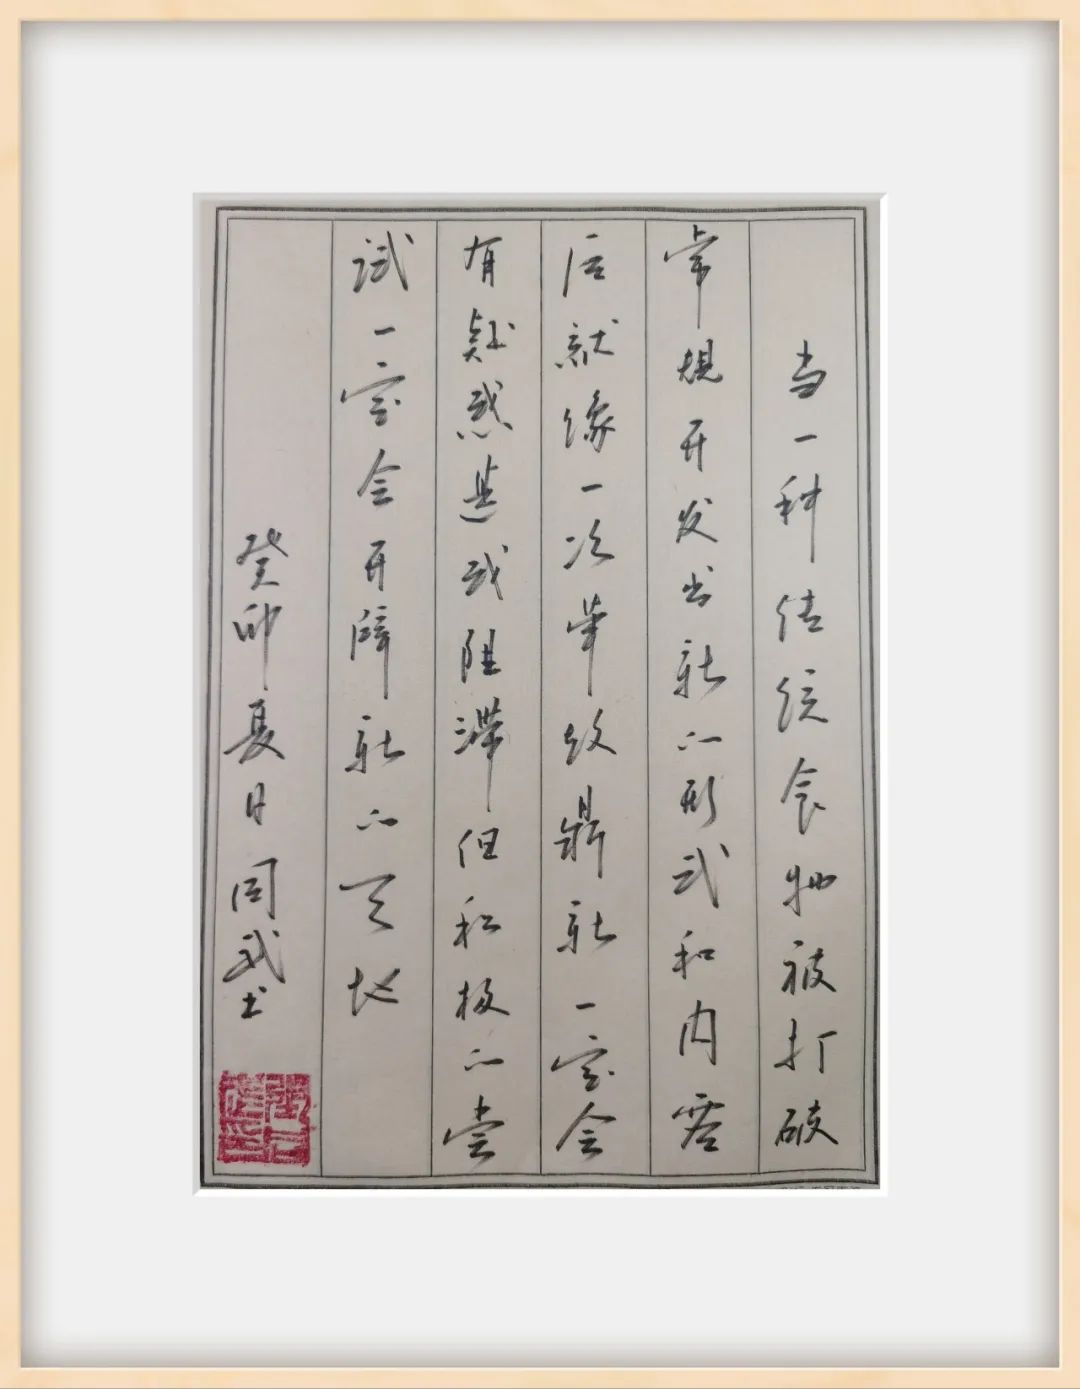 当一种传统食物被打破
常规开发出新的形式和内容
后就像一次革故鼎新一定会
有疑惑甚或阻滞但积极的尝
试一定会开辟新的天地
癸卯夏日同武书